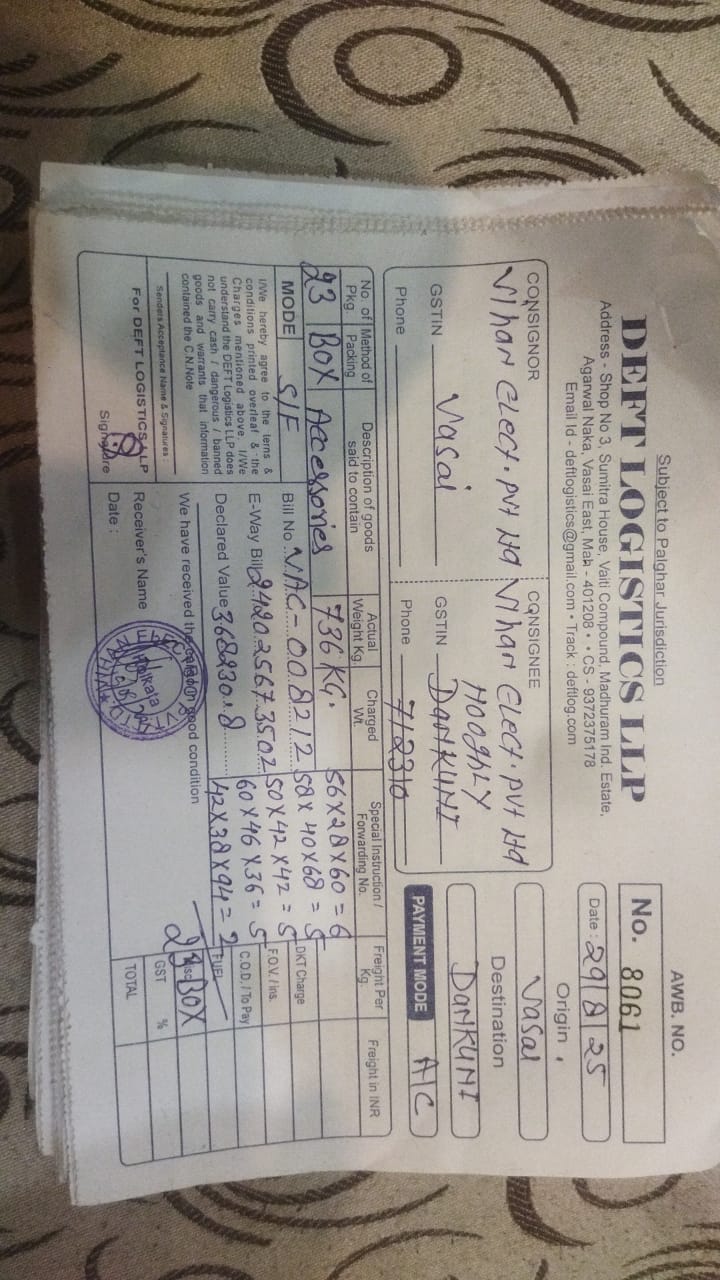 Subject to Palghar Jurisdiction
DEFT LOGISTICS LLP
Address - Shop No 3, Sumitra House, Vaiti Compound, Madhuram Ind. Estate,
Agarwal Naka, Vasai East, Mah - 401208 • • CS - 9372375178
Email Id - deftlogistics@gmail.com • Track : deftlog.com
AWB. NO.
No. 8061
Date : 29/8/25
Origin
Vasai
Destination
DANKUNI
PAYMENT MODE A/C
CONSIGNOR
Vihar Elect. Pvt Ltd
GSTIN Vasai
Phone
CONSIGNEE
Vihar Elect. Pvt Ltd
HOOGHLY
GSTIN DANKUNI
Phone 712310
No. of Pkg. Method of Packing Description of goods said to contain Actual Weight Kg. Charged Wt. Special Instruction / Forwarding No. Freight Per Kg. Freight in INR
23 BOX Accessories 736 KG.
56X28X60 = 6
58X40X68 = 5
50X42X42 = 5
60X46X36 = 5
42X38X94 = 2
23 BOX
MODE S/F
Bill No. VAC-008212
E-Way Bill 242025673502
Declared Value 368230.8
DKT Charge
F.O.V. / Ins.
C.O.D. / To Pay
FUEL
Misc
GST %
TOTAL
I/We hereby agree to the terns &
conditions printed overleaf & the
Charges mentioned above. I/We
understand the DEFT Logistics LLP does
not carry cash / dangerous / banned
goods and warrants that information
contained the C.N.Note
Senders Acceptance Name & Signatures :
For DEFT LOGISTICS LLP
Signature
We have received the goods in good condition
Receiver's Name
Date :
Kolkata